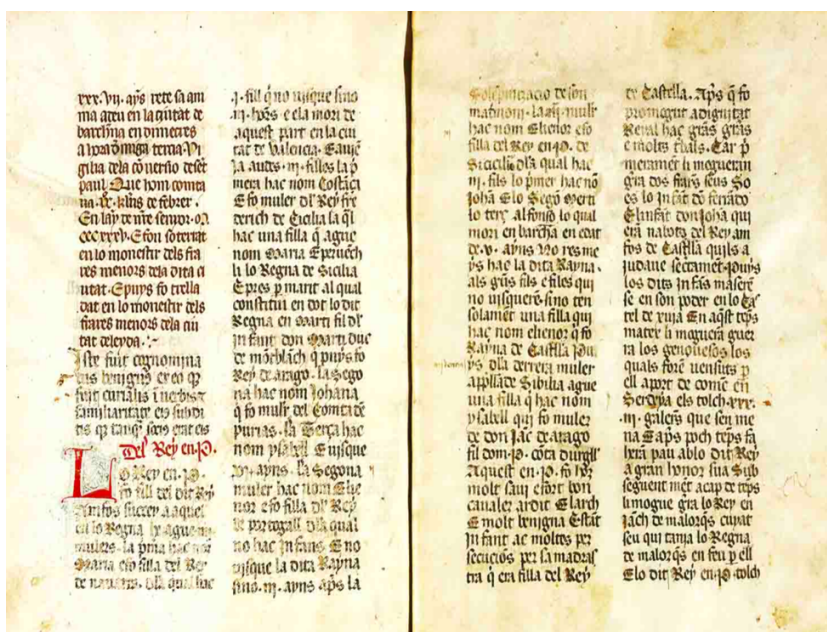 xxx.vii. ayñs rete sa ani
ma a deu en la ciutat de
barcelna en dimecres
a hora d miga tercia. Vi
gilia dela cōversio de set
paul Que hom comta
va .ix. klñs de febrer.
En lay de nre senyor. M
ccc xxxv. E fon soterrat
en lo monestir dels fra
res menors dela dita ci
utat. E puys fo trella
dat en lo monestir dels
frares menors dela ciu
tat de leyda.
Iste fuit cognomina
tus benignus eo q
fuit curialis i nobis t
familiaritate eis subdi
tis
Del Rey en .P.
Lo Rey en .P.
fo fill del dit Rey
Namfos succey a aquel
en lo Regne he ague .iiii.
mulers. La pma hac nom
Maria e fo filla del Rey
de navarra. dla qual hac
.i. fill q no visque sino
.iii. hores e ela mori de
aquest part en la ciu
tat de Valencia. E avie
ja audes .iii. filles la p
mera hac nom Costāça
E fo muler dl Rey fre
derich de Cicilia la ql
hac una filla q ague
nom Maria E pervech
li lo Regna de Sicilia
E pres p marit al qual
constitui en dot lo dit
Regna en Marti fil dl
infant don Marti duc
de mōtblāch q puys fo
Rey de arago. La sego
na hac nom Johana
q fo mulr del Comta de
Purias. La Terça hac
nom ysabell E visque
xi. ayns. La Segona
muler hac nom Elie
nor e fo filla dl Rey
de portogall dla qual
no hac infans E no
visque la dita Rayna
sino .iii. ayns aps la
Solepnizacio de son
matimoni. La iii. mulr
hac nom Elienor e fo
filla del Rey en .P. de
Sicilia dla qual hac
iii. fils lo pmer hac nō
Johā E lo Segō Merti
lo terç alfonso lo qual
mori en barchā en edat
de .v. ayns No res me
ys hac la dita Rayna.
als gūs fils e files qui
no visquerē sino ten
solament una filla qui
hac nom elienor q fo
Rayna de Castlla Pu
ys dla derrera muler
appllade Sibilia ague
una filla q hac nom
ysabell qui fo muler
de don Jac de arago
fil dom .P. cōta durgll
Aquest en .P. fo hō
molt savi e fort bon
cavaler ardit E larch
E molt benigna Estāt
infant ac moltes per
secucios per sa madras
tra q era filla del Rey
de Castella. Aps q fo
promogut a dignitat
Reyal hac grās gras
e molts thalls. Car p
merament li mogueran
gra dos frars seus So
es lo infāt dō ferrādo
E linfāt don Johā qui
erā nabots del Rey am
fos de Castlla quils a
judave sectamēt. Puys
los dits infās mataren
se en son poder en lo Cas
tel de xuia En aqst teps
matex li moguerā guer
ra los genovesos los
quals forē vensuts p
ell a port de comte en
Serdeya els tolch. xxx.
.iii. galers que sen me
na E aps poch teps fa
herā pau ab lo dit Rey
a gran honor sua Sub
seguent met a cap de teps
li mogue gra lo Rey en
Jach de malorqs cunat
seu qui tania lo Regna
de malorqs en feu p ell
E lo dit Rey en .P. tolch